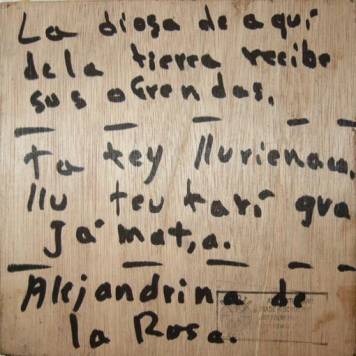 La diosa de aquí
de la tierra recibe
sus oGrendas.
Ta tey llurienaca.
llu teu tari gua
Já mat,a.
Alejandrina de
la Rosa.